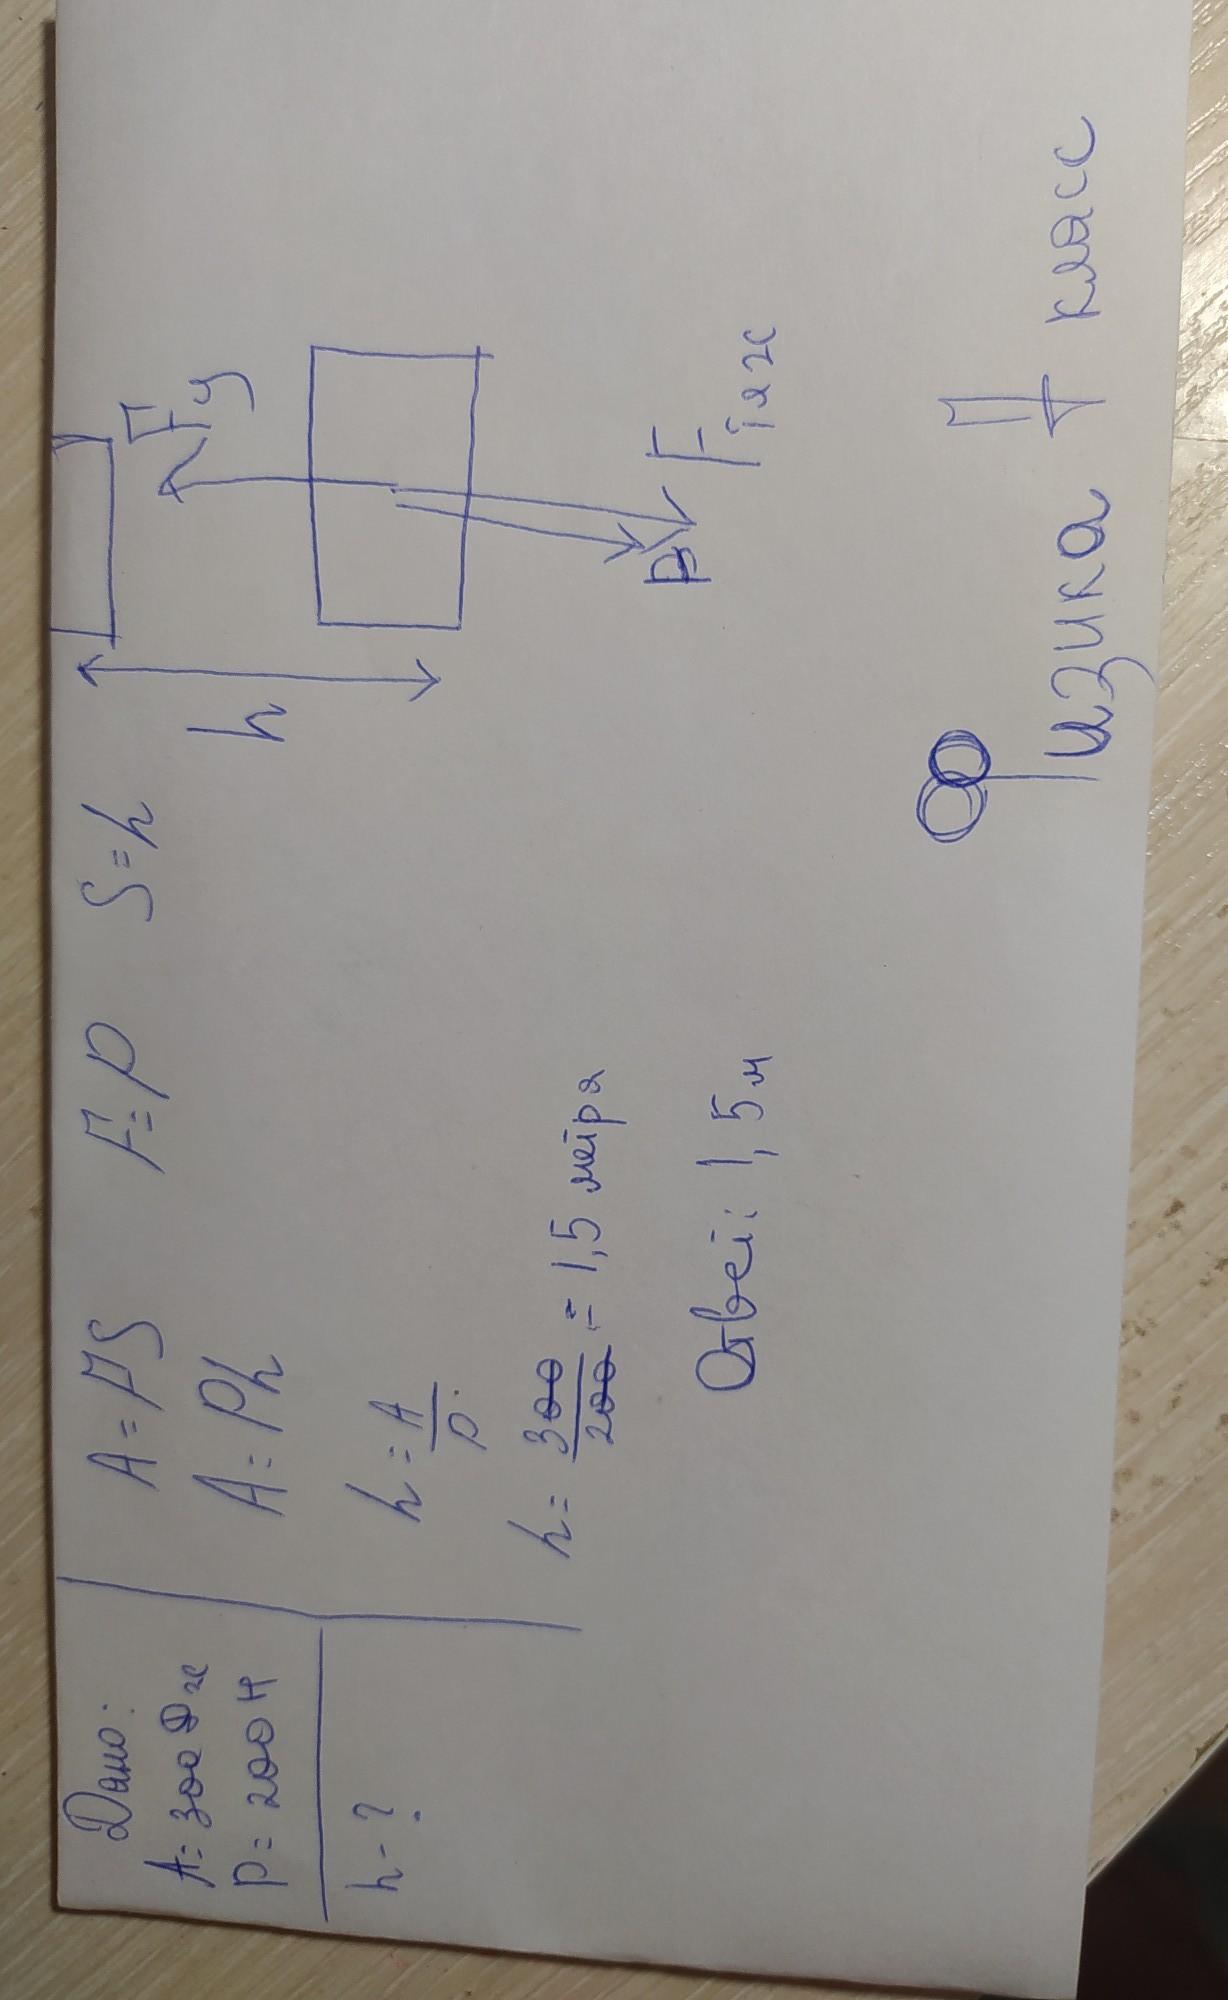 Дано:
A = 300 Дж
P = 200 Н
h - ?
A = FS F = P S = h
A = Ph
h = A/P
h = 300/200 = 1,5 метра
Ответ: 1,5 м
h
Fу
P
Fтяж
Физика 7 класс